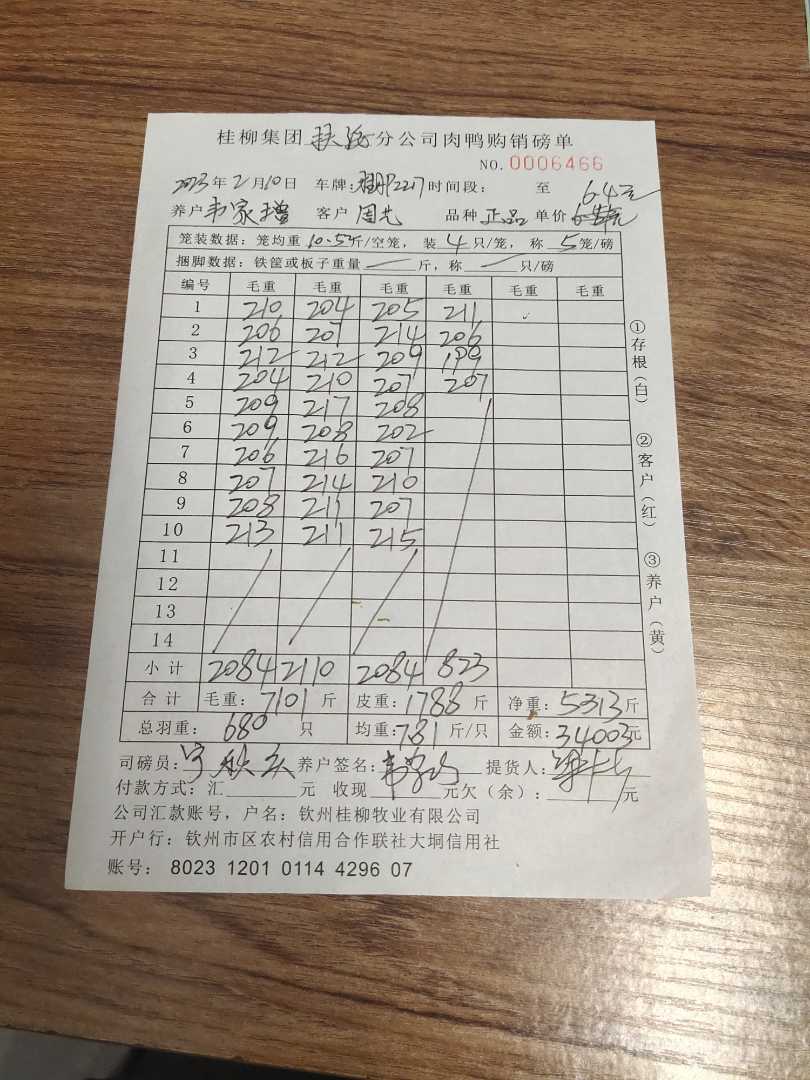 桂柳集团 分公司肉鸭购销磅单
NO.0006466
2023年2月10日 车牌: 时间段: 至
6.4元
养户韦家增 客户周先 品种正品单价
笼装数据:笼均重10.5斤/空笼,装4只/笼,称5笼/磅
捆脚数据:铁筐或板子重量 斤,称 只/磅
编号 毛重 毛重 毛重 毛重 毛重 毛重
1 210 204 205 211
2 206 207 214 206
3 212 212 209 199
4 204 210 207 207
5 209 217 208
6 209 208 202
7 206 216 207
8 207 214 210
9 208 211 207
10 213 211 215
11
12
13
14
小计 2084 2110 2084 823
合计 毛重:7101斤 皮重:1788斤 净重:5313斤
总羽重:680只 均重:781斤/只 金额:34003元
司磅员: 养户签名: 提货人:
付款方式:汇 元 收现 元欠(余): 元
公司汇款账号,户名:钦州桂柳牧业有限公司
开户行:钦州市区农村信用合作联社大垌信用社
账号:8023 1201 0114 4296 07
①存根(白)
②客户(红)
③养户(黄)